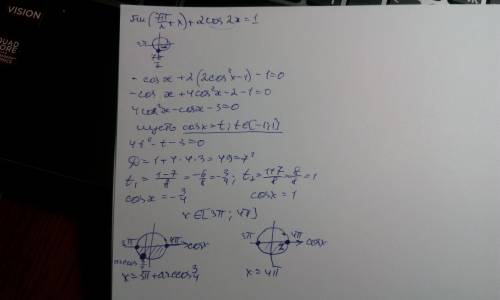 VISION
QUAD
CORE
sin(7π/2 + x) + 2cos 2x = 1
7π/2
-cos x + 2(2cos²x - 1) - 1 = 0
-cos x + 4cos²x - 2 - 1 = 0
4cos²x - cos x - 3 = 0
пусть cos x = t; t∈[-1;1]
4t² - t - 3 = 0
D = 1 + 4·4·3 = 49 = 7²
t₁ = (1-7)/8 = -6/8 = -3/4; t₂ = (1+7)/8 = 8/8 = 1
cos x = -3/4 cos x = 1
x∈[3π; 4π]
3π 4π cos x 3π 4π cos x
x = 3π + arccos 3/4 x = 4π